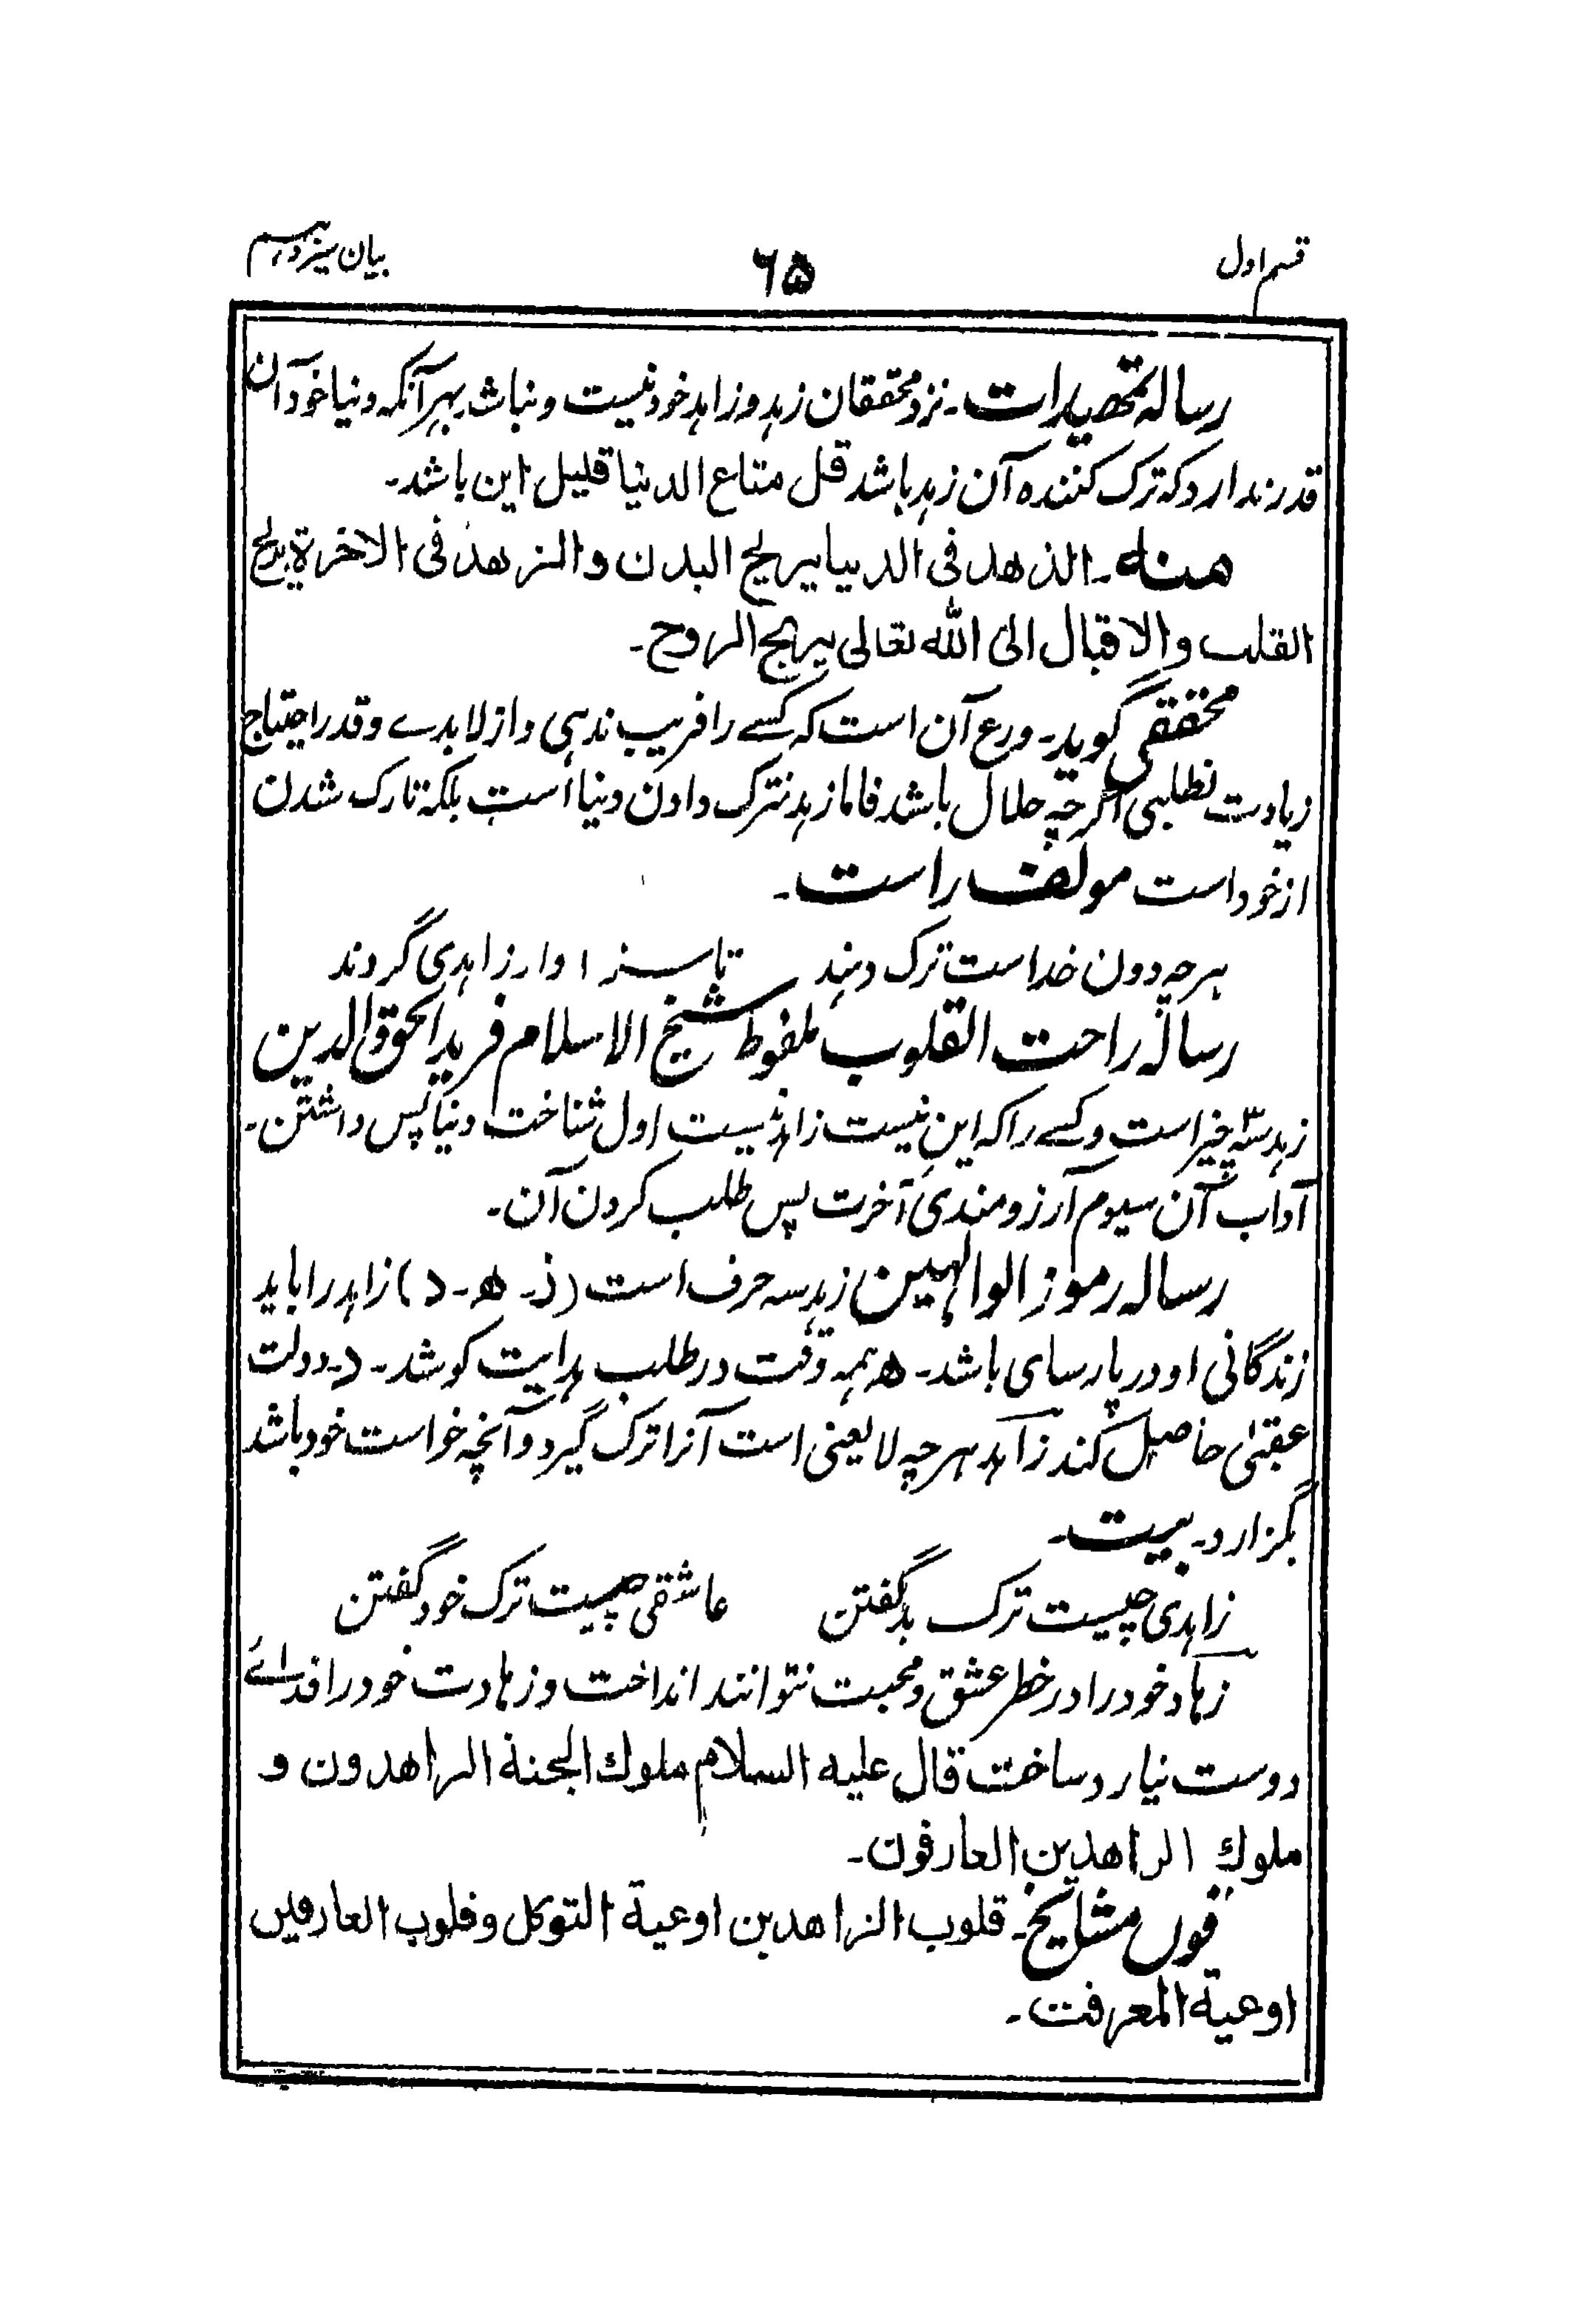 قسم اول
۶۵
بیان سیزدهم
رساله تحصیرات۔ نزد محققان زهد و زاهد خود نیست و نباشد بهر آنکه دنیا خود آن
قدر ندارد که ترک کننده آن زهد باشد قل متاع الدنیا قلیل این باشد۔
منه۔ الذهد فی الدنیا یریح البدن والزهد فی الاخرة یریح
القلب والاقبال الی الله تعالی یریح الروح۔
محققی گوید۔ ورع آن است که کسے را فریب ندهی و از لابدے و قدر احتیاج
زیادت نطلبی اگرچه حلال باشد فاما زهد نترک دادن دنیا است بلکه تارک شدن
از خود است مولف راست۔
هرچه دون خداست ترک دهند تا سزاوار زاهدی گردند
رساله راحت القلوب ملفوظ شیخ الاسلام فرید الحق والدین
زهد سه چیز است و کسے را که این نیست زاهد نیست اول شناخت دنیا پس داشتن۔
آداب آن سیوم آرزومندی آخرت پس طلب کردن آن۔
رساله رموز الوالهین زهد سه حرف است (ز۔ ه۔ د) زاهد را باید
زندگانی او در پارسای باشد۔ ه همه وقت در طلب هدایت کوشد۔ د۔ دولت
عقبیٰ حاصل کند زاهد هرچه لایعنی است آنرا ترک گیرد و آنچه خواست خود باشد
بگزارد۔ بیت۔
زاهدی چیست ترک بد گفتن عاشقی چیست ترک خود گفتن
زهاد خود را در خطر عشق و محبت نتوانند انداخت و زهادت خود را فدائے
دوست نیارد ساخت قال علیه السلام ملوك الجنة الزاهدون و
ملوك الزاهدین العارفون۔
قول مشایخ۔ قلوب الزاهدین اوعیة التوکل وقلوب العارفین
اوعیة المعرفت۔